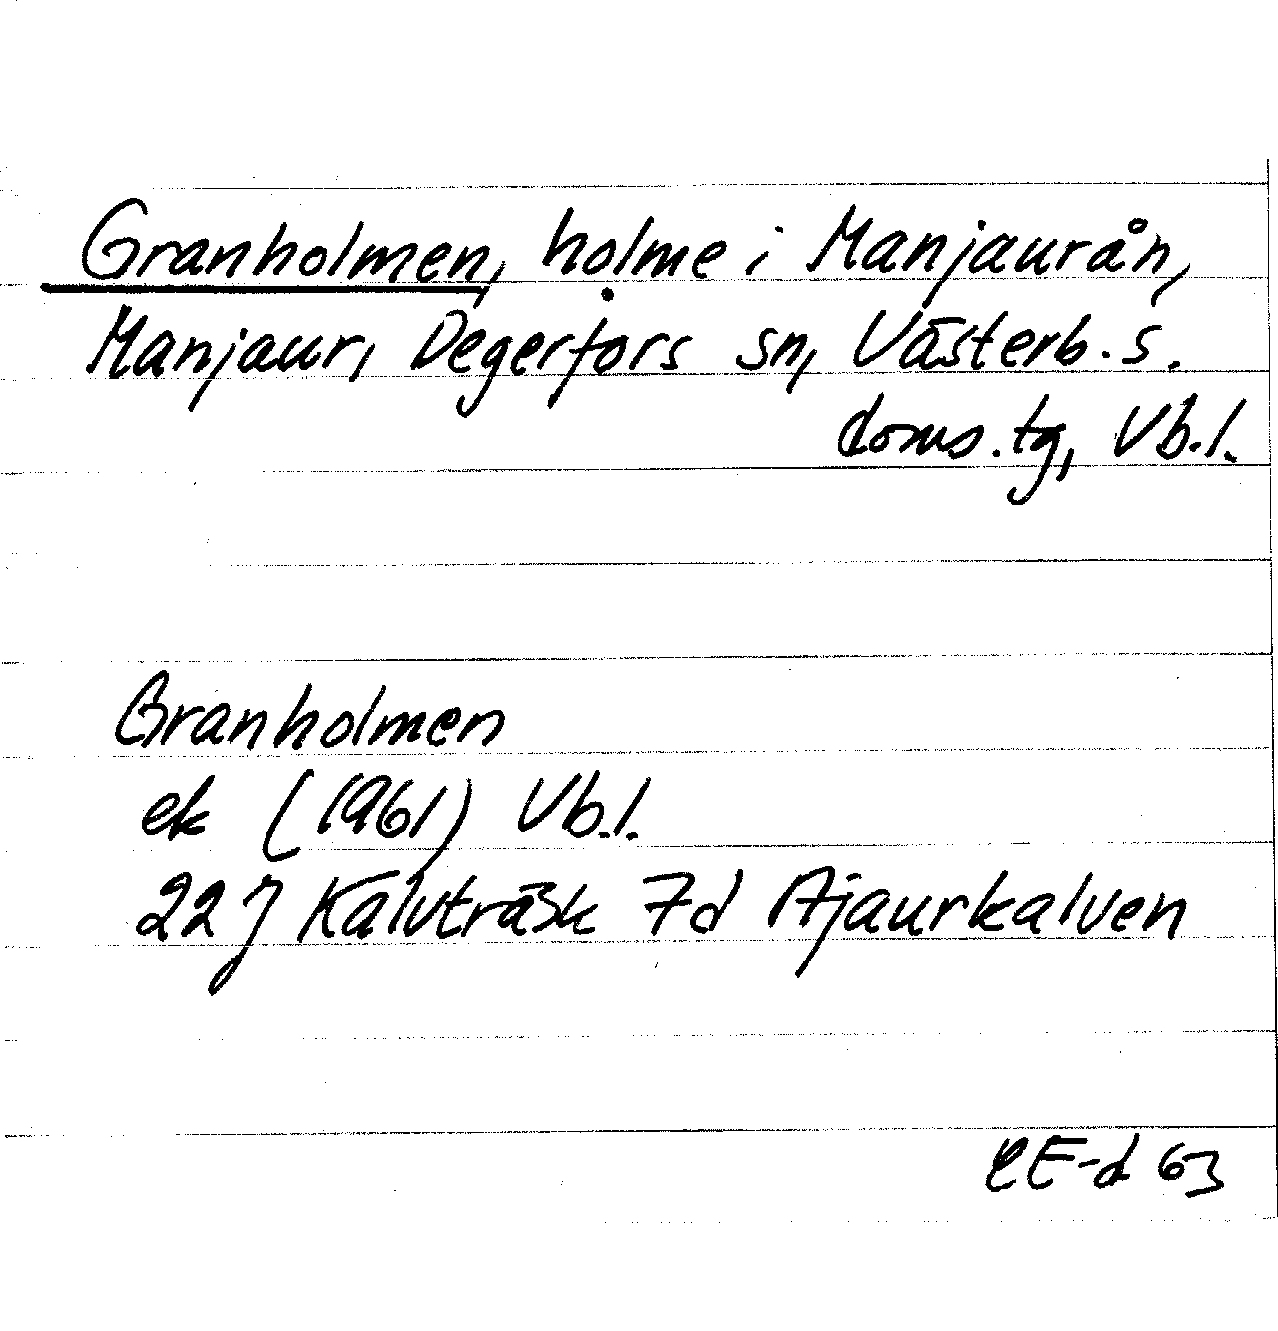 Granholmen, holme i Manjaurån,
Manjaur, Degerfors sn, Västerb. s.
doms. tg, Vb. l.
Granholmen
ek (1961) Vb. l.
22 J Kalvträsk 7d Ajaurkalven
EE-d 63